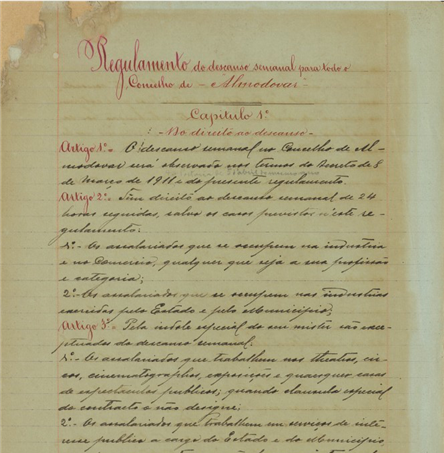 Regulamento do descanso semanal para todo o
Concelho de - Almodovar
Capitulo 1º
- Do direito ao descanso -
Artigo 1º - O descanso semanal no Concelho de Al-
modovar será observado nos termos do Decreto de 8
de Março de 1911 e do presente regulamento.
Artigo 2º - Tem direito ao descanso semanal de 24
horas seguidas, salvo os casos previstos n'este re-
gulamento:
1º - Os assalariados que se occupem na industria
e no Comercio, qualquer que seja a sua profissão
e categoria;
2º - Os assalariados que se occupem nas industrias
exercidas pelo Estado e pelo Municipio;
Artigo 3º - Pela indole especial do seu mister são exce-
ptuados do descanso semanal:
1º - Os assalariados que trabalhem nos theatros, cir-
cos, cinematographos, exposições e quaesquer casas
de espectaculos publicos; quando clausula especial
do contracto o não designe;
2º - Os assalariados que trabalhem em serviços de inte-
resse publico a cargo do Estado e do Municipio